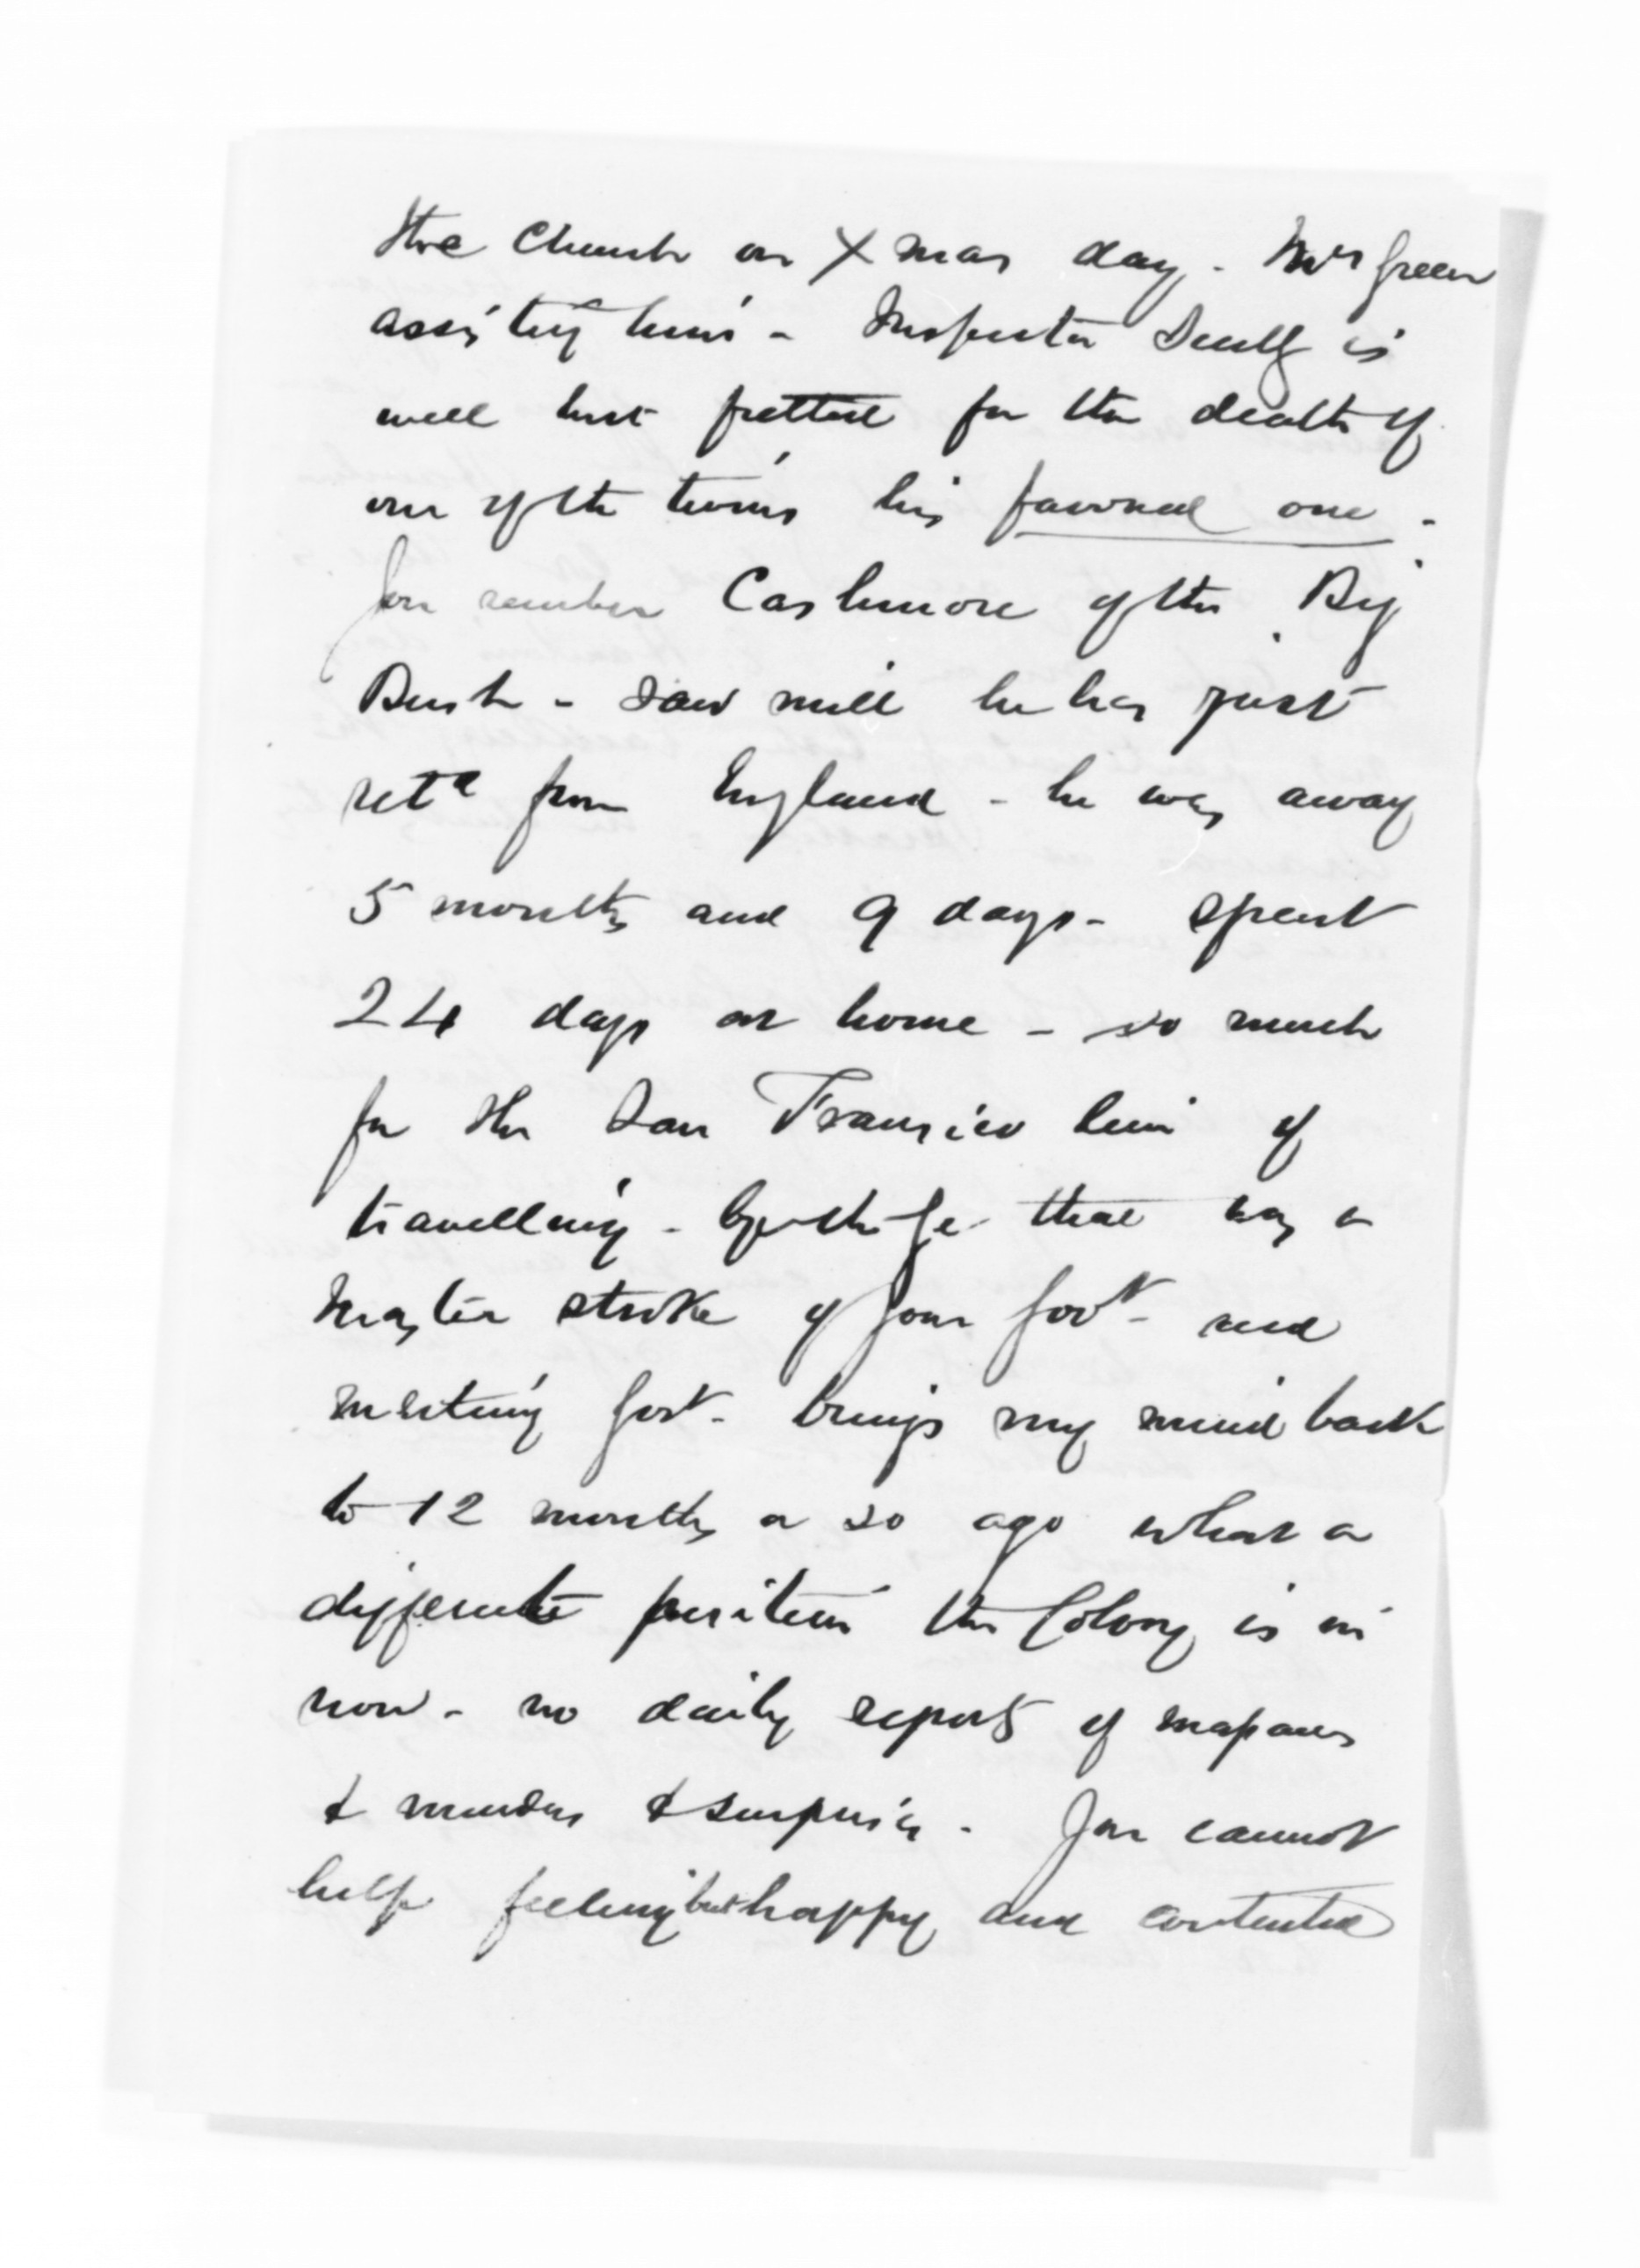 the Church on Xmas day - Mrs Green
assisting him - Inspector Scully is
well but fretted for the death of
one of the twins his favored one -
You remember Cashmore of the Big
Bush - Saw mill he has just
retd from England - he was away
5 months and 9 days - spent
24 days at home - so much
for the San Francisco line of
travelling - that was a
Master stroke of your Govt - and
meeting Govt - brings my mind back
to 12 months or so ago what a
different position the Colony is in
now - no daily reports of
& murders & surprises - You cannot
help feeling but happy and contented